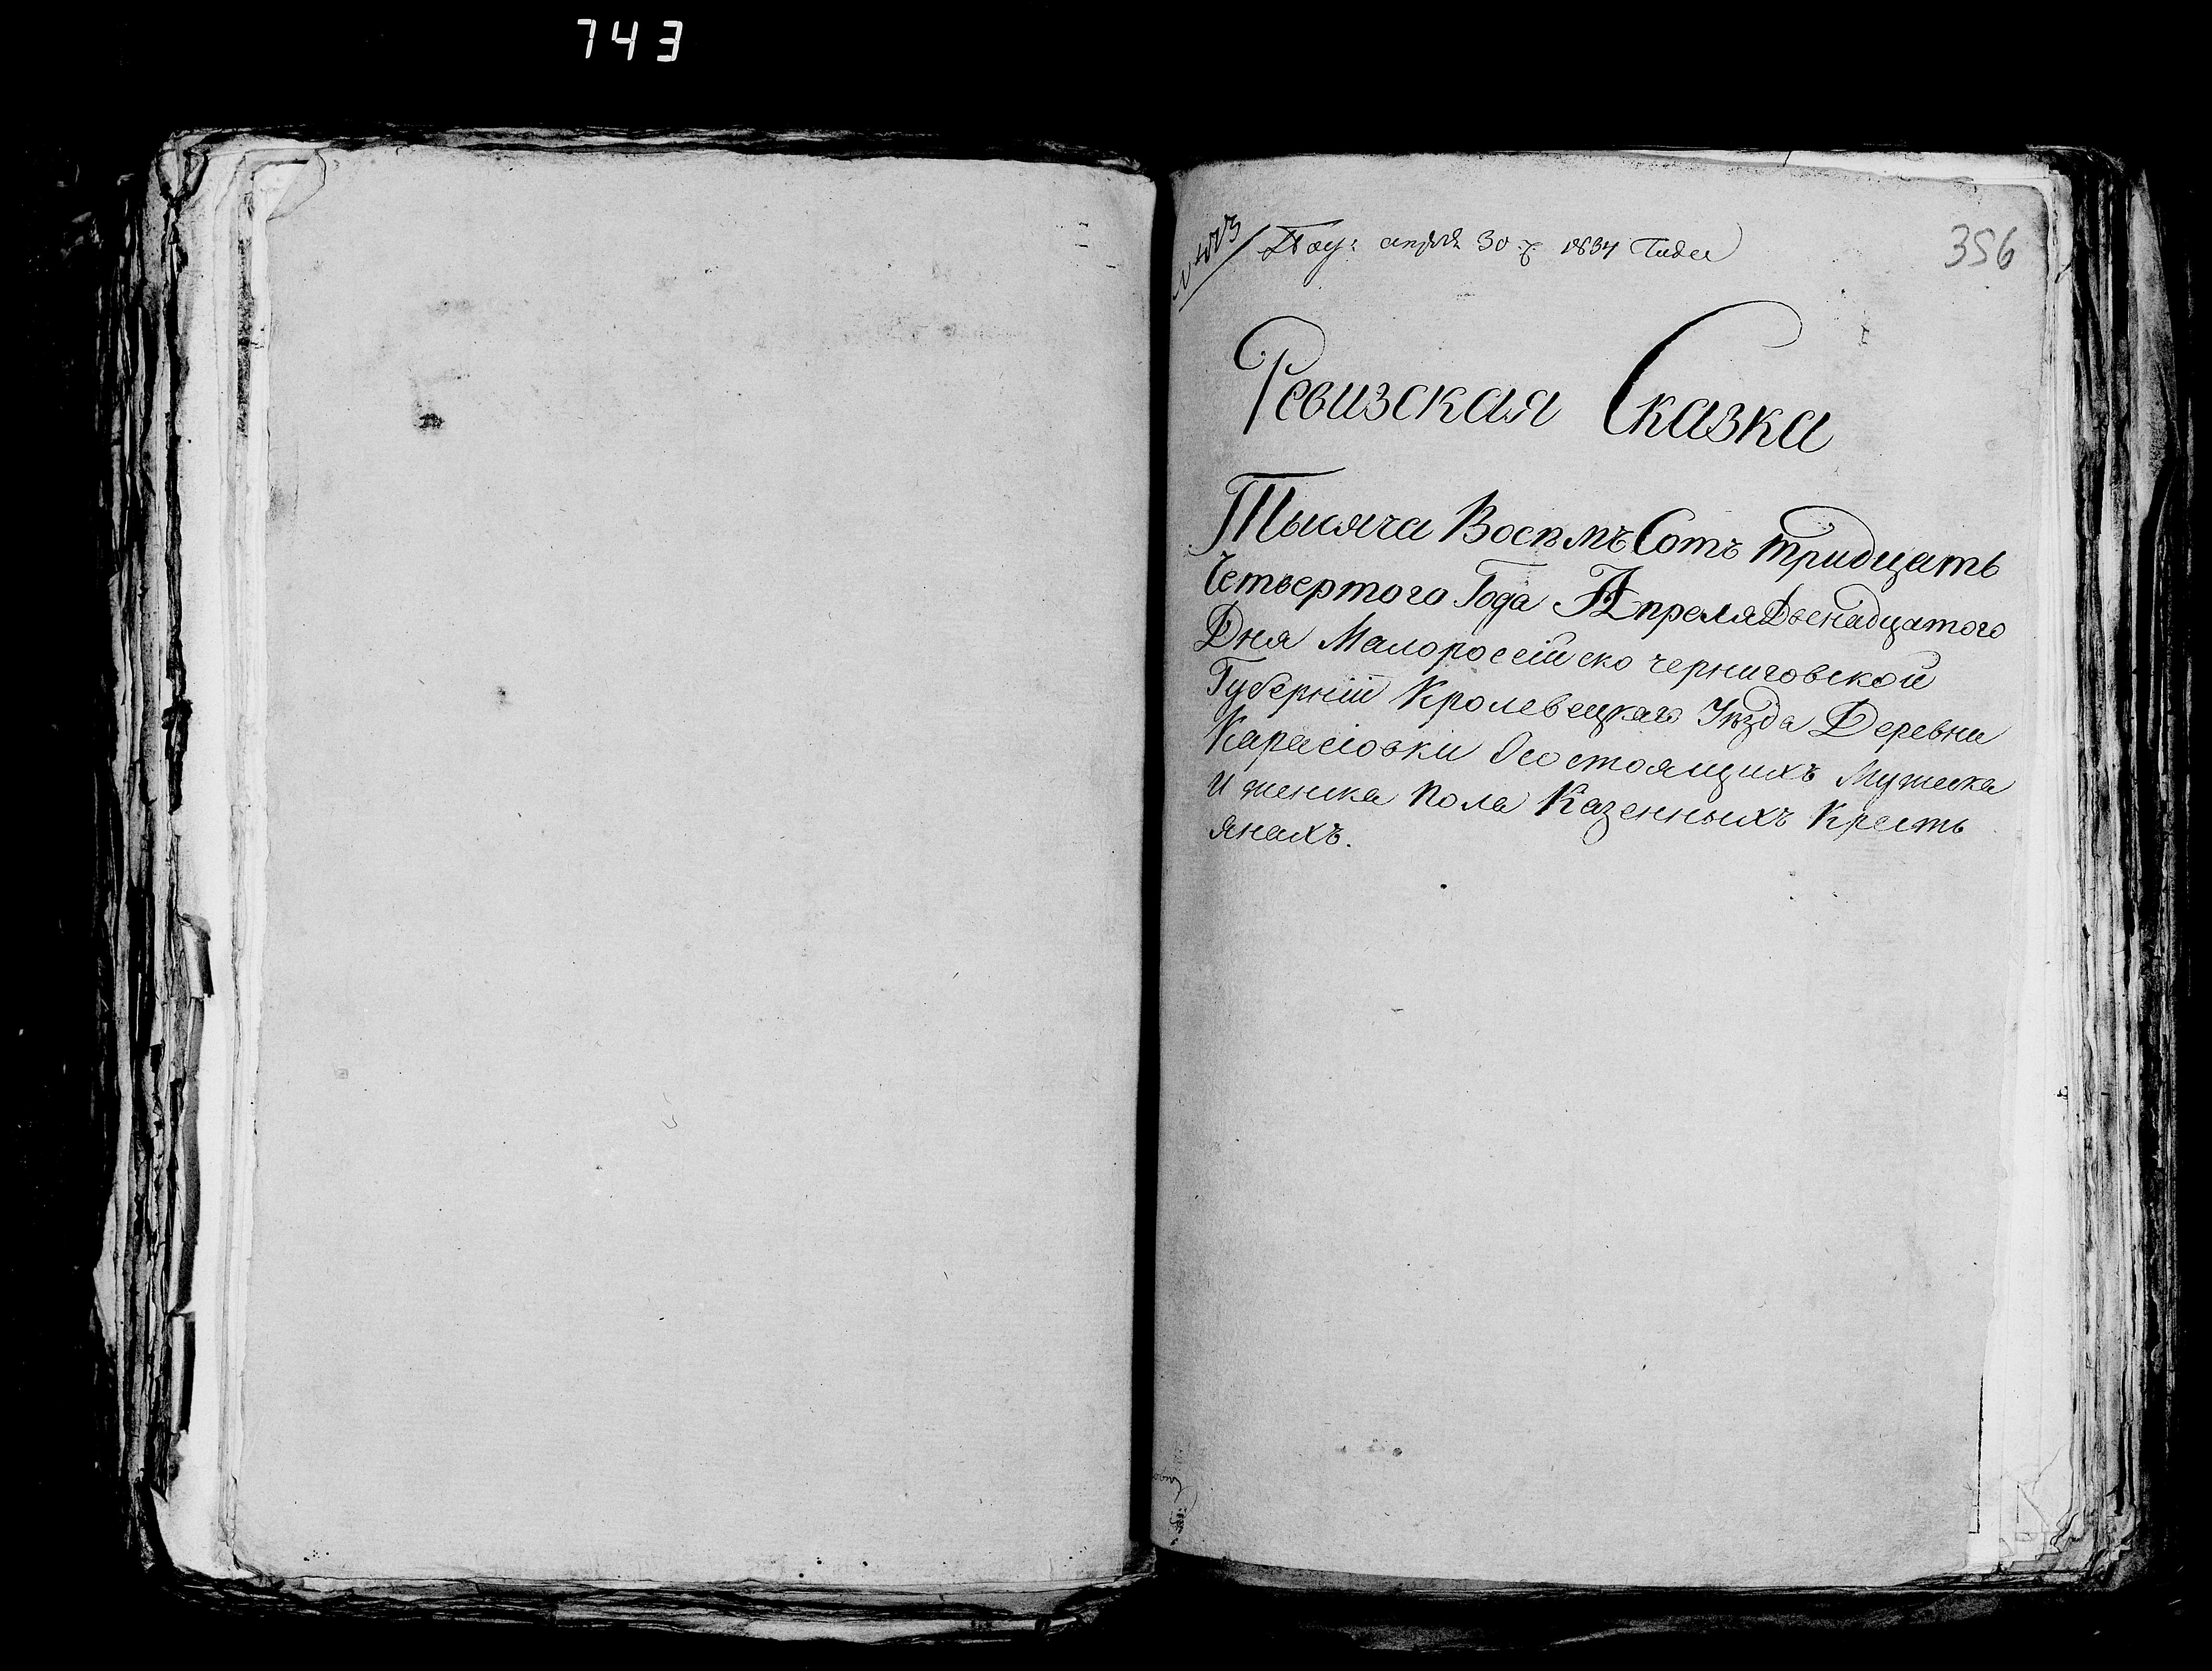 743
356
апреля 30 1834 Года
Ревизская Сказка
Тысяча Восемъ Сотъ тридцать
Четвертого Года Апреля Двенадцатого
Дня Малоросейско черниговской
Губернии Кролевецкаго Уѣзда Деревни
Карасіовки Осостоящихъ Мужеска
и женска пола Казенныхъ Кресть
янахъ.